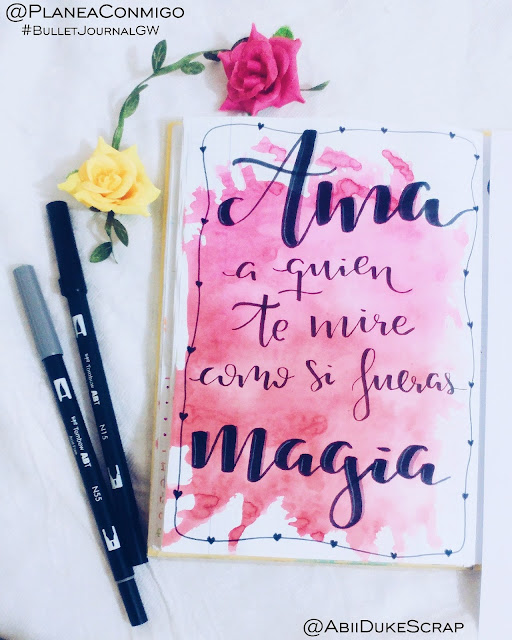 @PlaneaConmigo
#BulletJournalGW
Ama
a quien
te mire
como si fueras
magia
Tombow ABT
N15
Tombow ABT
N55
@AbiiDukeScrap